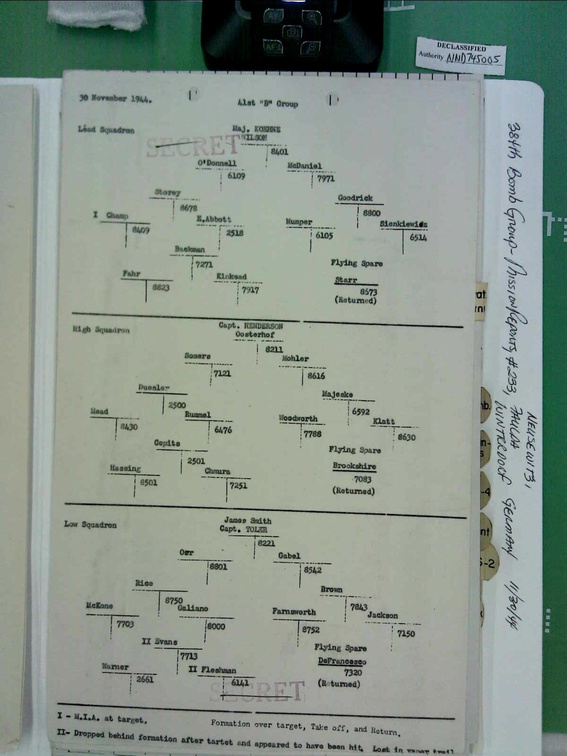 DECLASSIFIED
Authority NND745005
30 November 1944.
41st "B" Group
Lead Squadron
SECRET
Maj. KOEHNE
WILSON
8401
O'Donnell
6109
McDaniel
7971
Storey
8678
Goodrick
8800
I Champ
8409
E.Abbott
2518
Numper
6105
Sienkiewicz
6514
Backman
7271
Flying Spare
Fahr
8823
Kinkead
7917
Starr
8573
(Returned)
High Squadron
Capt. HENDERSON
Oosterhof
8211
Somers
7121
Mohler
8616
Duesler
2500
Majeske
6592
Mead
8430
Rummel
6476
Woodworth
7788
Klatt
8630
Gopits
2501
Flying Spare
Hassing
8501
Chmura
7251
Brookshire
7083
(Returned)
Low Squadron
James Smith
Capt. TOLER
8221
Orr
8801
Gabel
8542
Rice
8750
Brown
7843
McKone
7703
Galiano
8000
Farnsworth
8752
Jackson
7150
II Evans
7713
Flying Spare
Warner
2661
II Fleshman
6141
DeFrancesco
7320
(Returned)
SECRET
I - M.I.A. at target.
Formation over target, Take off, and Return.
II- Dropped behind formation after target and appeared to have been hit. Lost in vapor trail
384th Bomb Group- Mission Reports, #233,
11/30/44
GERMANY